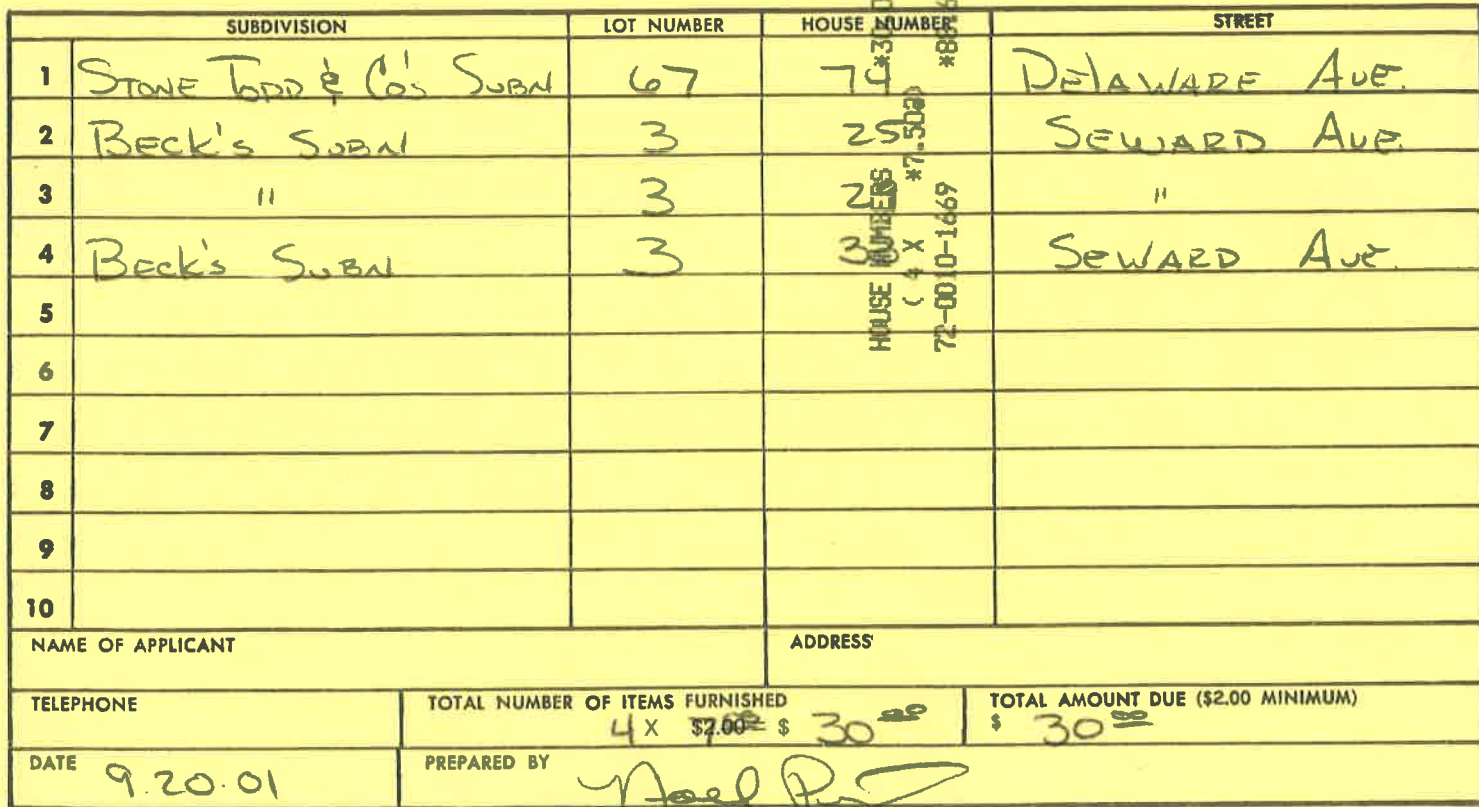 SUBDIVISION LOT NUMBER HOUSE NUMBER STREET
1 STONE TODD & Co's SUBN 67 74 DELAWARE AVE.
2 BECK's SUBN 3 25 SEWARD AVE.
3 " 3 "
4 BECK's SUBN 3 SEWARD AVE.
5
6
7
8
9
10
HOUSE NUMBERS
( 4 X *7.50@)
72-0010-1669
NAME OF APPLICANT ADDRESS
TELEPHONE TOTAL NUMBER OF ITEMS FURNISHED TOTAL AMOUNT DUE ($2.00 MINIMUM)
4 X $2.00 $ 30 00 $ 30 00
DATE 9.20.01 PREPARED BY Noel